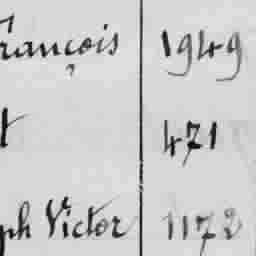 François 1949
t 471
ph Victor 1172